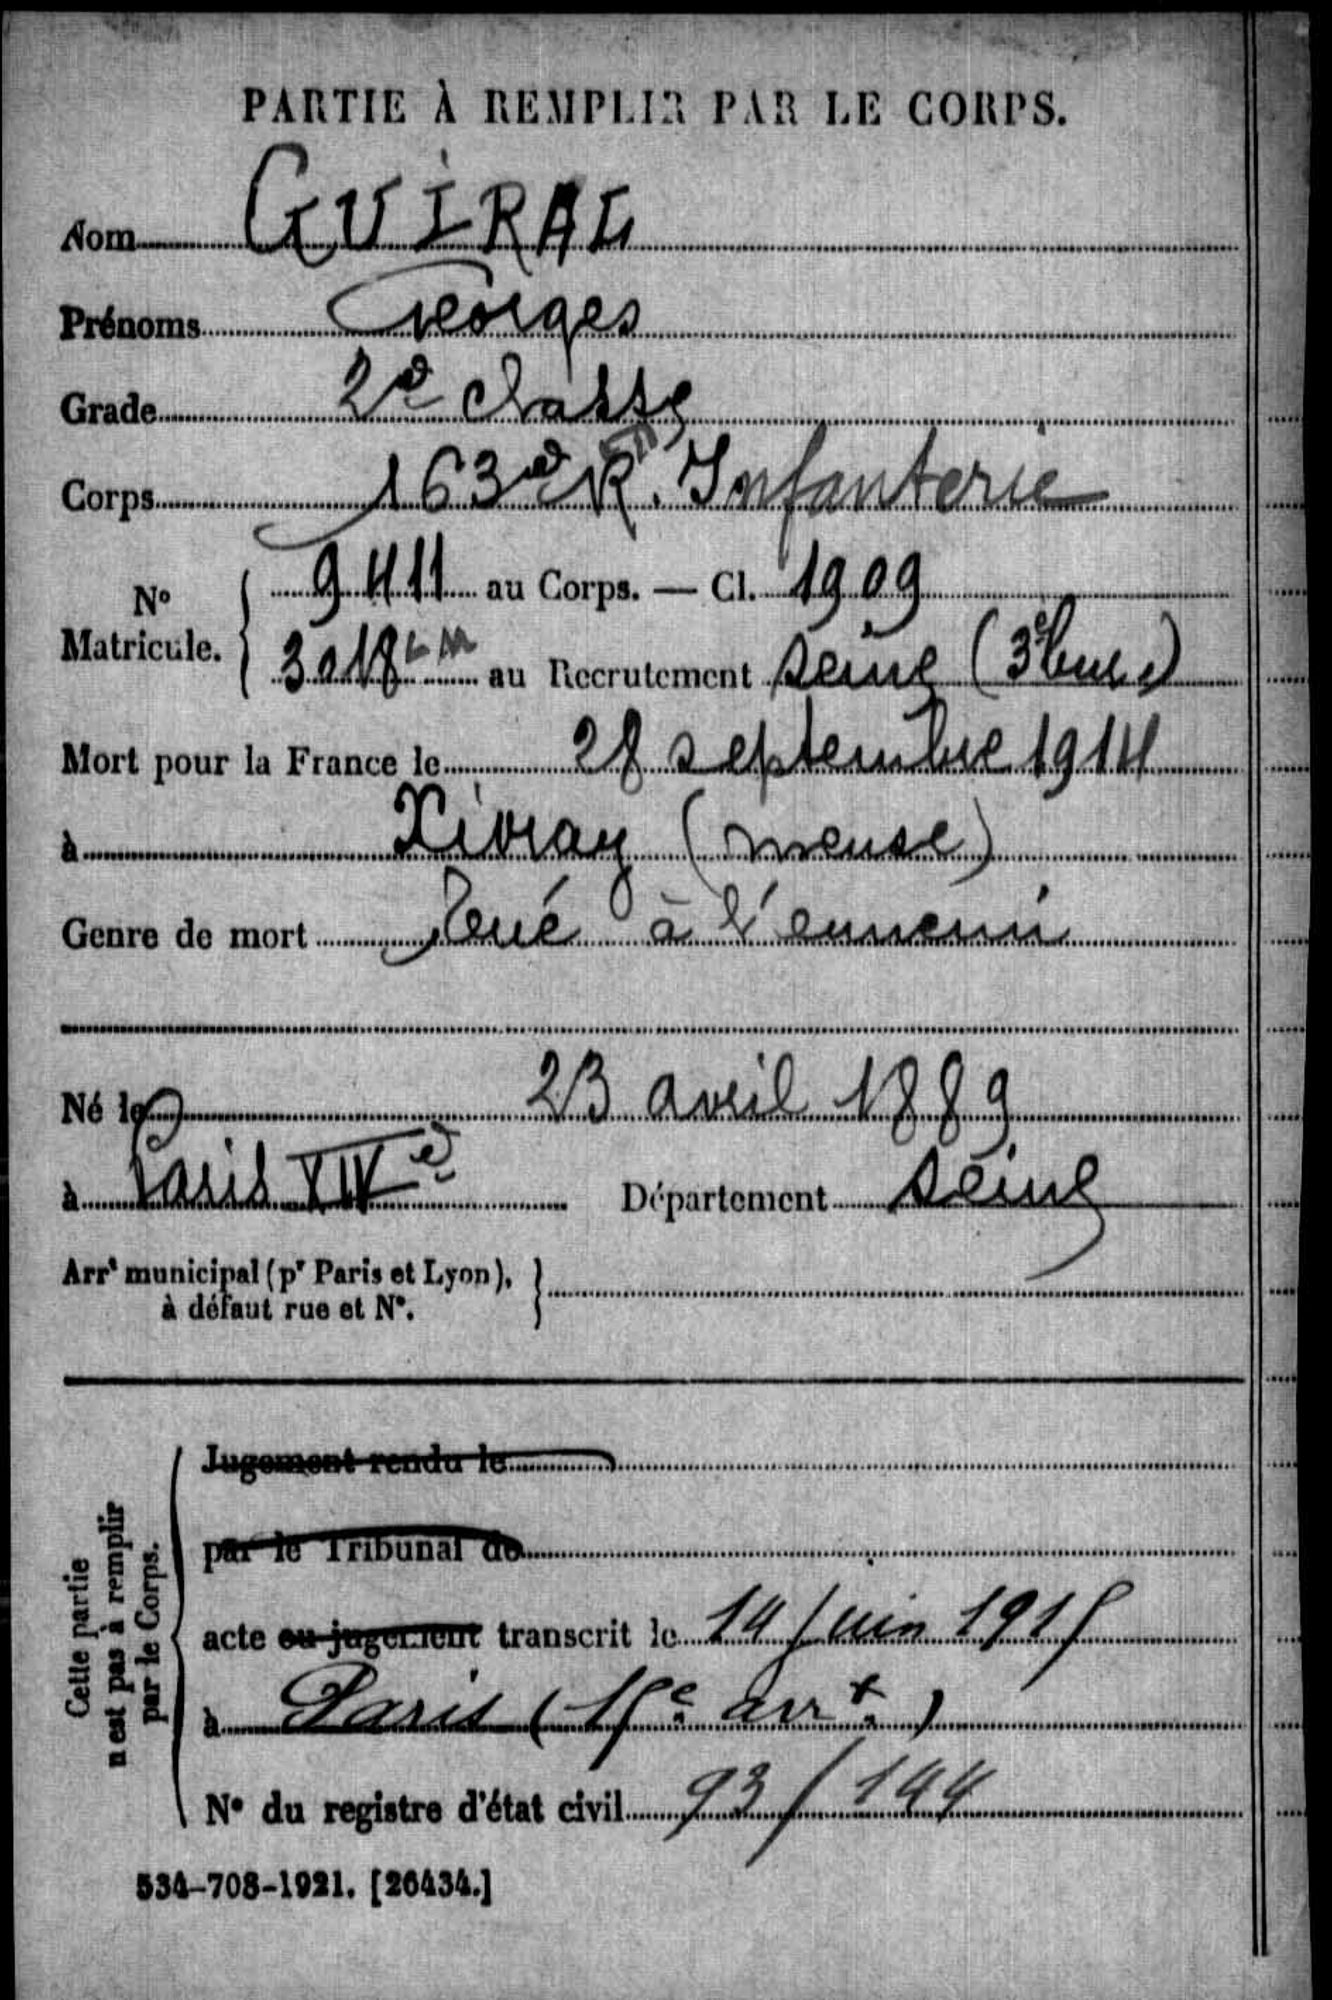 PARTIE À REMPLIR PAR LE CORPS.
Nom GUIRAL
Prénoms Georges
Grade 2e classe
Corps 163e R. Infanterie
N° Matricule. 9411 au Corps. — Cl. 1909
3018 LM au Recrutement Seine (3e bureau)
Mort pour la France le 28 septembre 1914
à Xivray (Meuse)
Genre de mort Tué à l'ennemi
Né le 23 avril 1889
à Paris XIVe Département Seine
Arrt municipal (pr Paris et Lyon), à défaut rue et N°.
Cette partie n'est pas à remplir par le Corps.
Jugement rendu le
par le Tribunal de
acte ou jugement transcrit le 14 juin 1915
à Paris (15e arrt.)
N° du registre d'état civil 93/144
534-708-1921. [26434.]